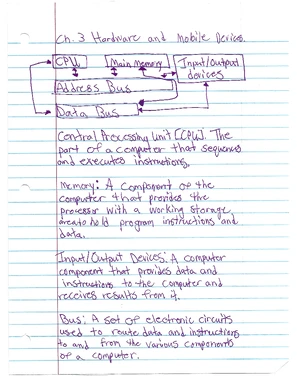 Ch. 3 Hardware and Mobile Devices.
CPU Main Memory Input/Output
devices
Address Bus
Data Bus
Central Processing Unit [CPU]: The
part of a computer that sequences
and executes instructions.
Memory: A Component of the
computer that provides the
processor with a working storage
area to hold program instructions and
data.
Input/Output Devices: A computer
component that provides data and
instructions to the computer and
receives results from it.
Bus: A set of electronic circuits
used to route data and instructions
to and from the various components
of a computer.